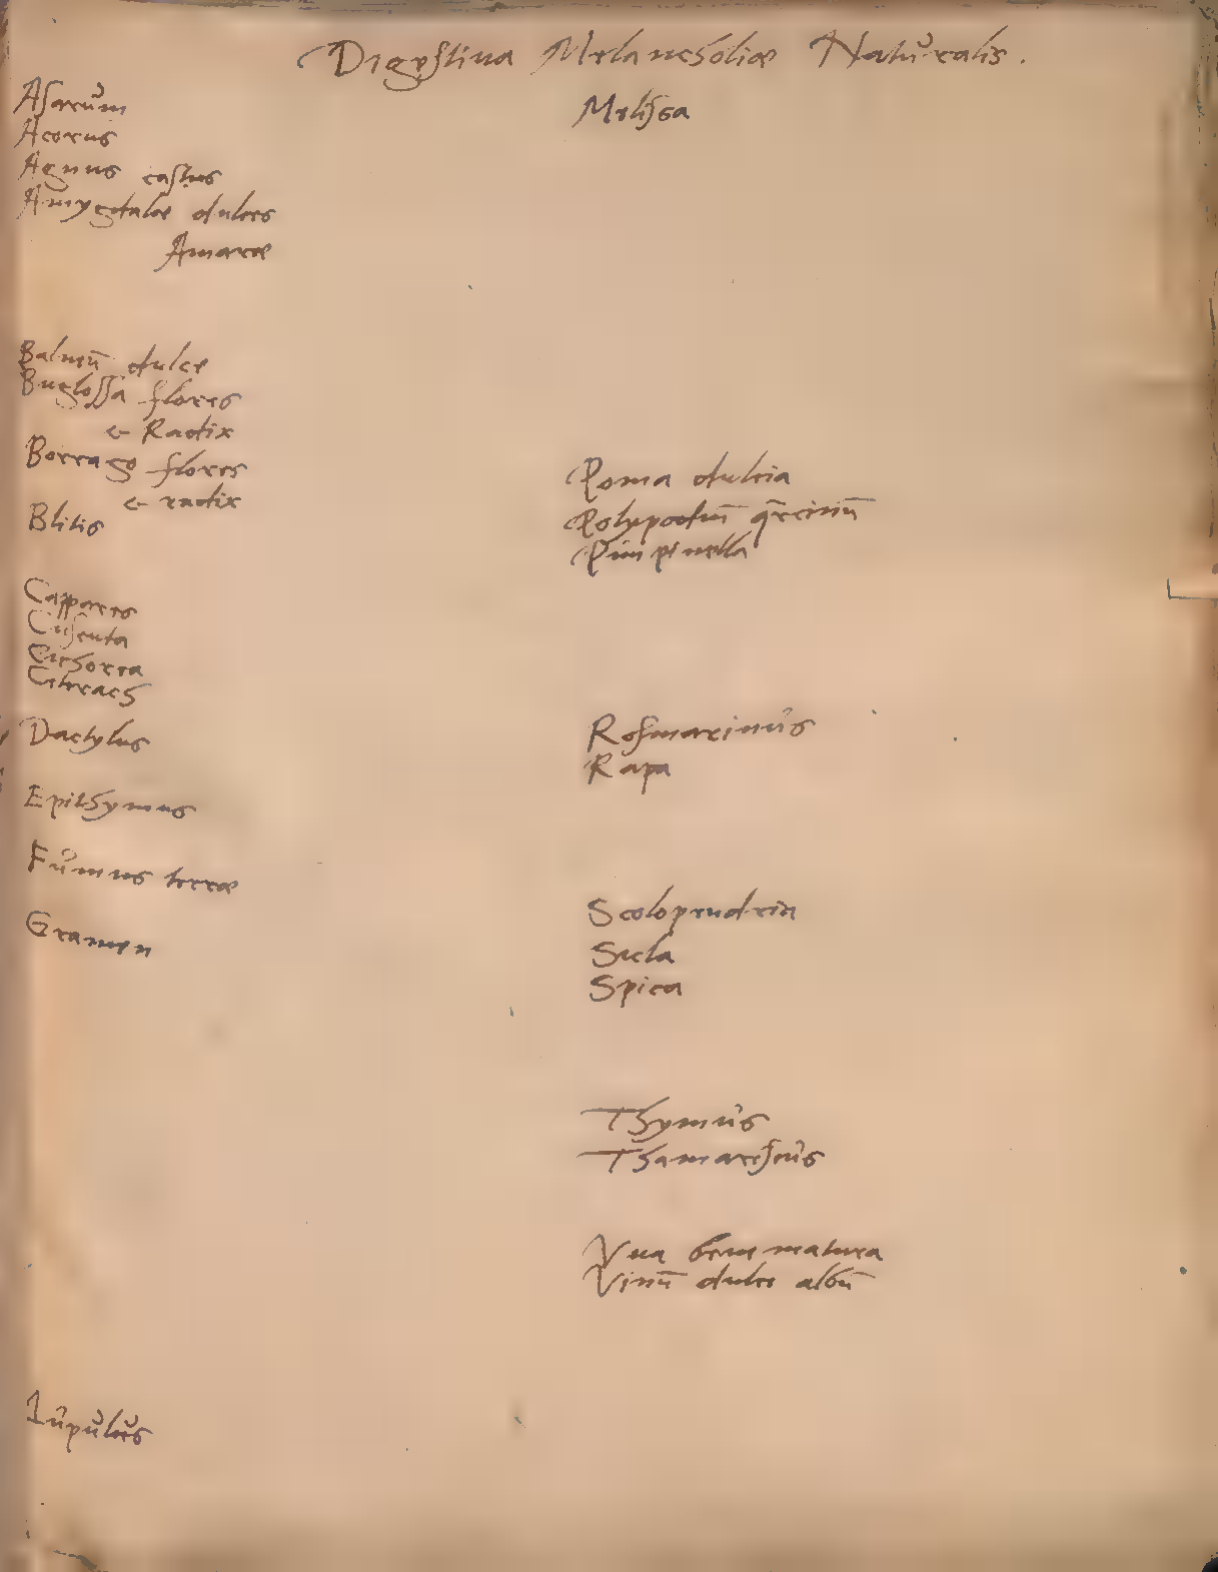 Digestiua Melancholiæ Naturalis.
Asarum
Acorus
Agnus castus
Amygdalæ dulces
Amaræ
Balneū dulce
Buglossa flores
& Radix
Borrago flores
& radix
Blitis
Cappares
Cuscuta
Cichorea
Cetrach
Dactylus
Epithymus
Fumus terræ
Gramen
Lupulus
Melissa
Poma dulcia
Polypodiū q̄rcinū
Pimpinella
Rosmarinus
Rapa
Scolopendria
Sicla
Spica
Thymus
Thamariscus
Vua bene matura
Vinū dulce albū